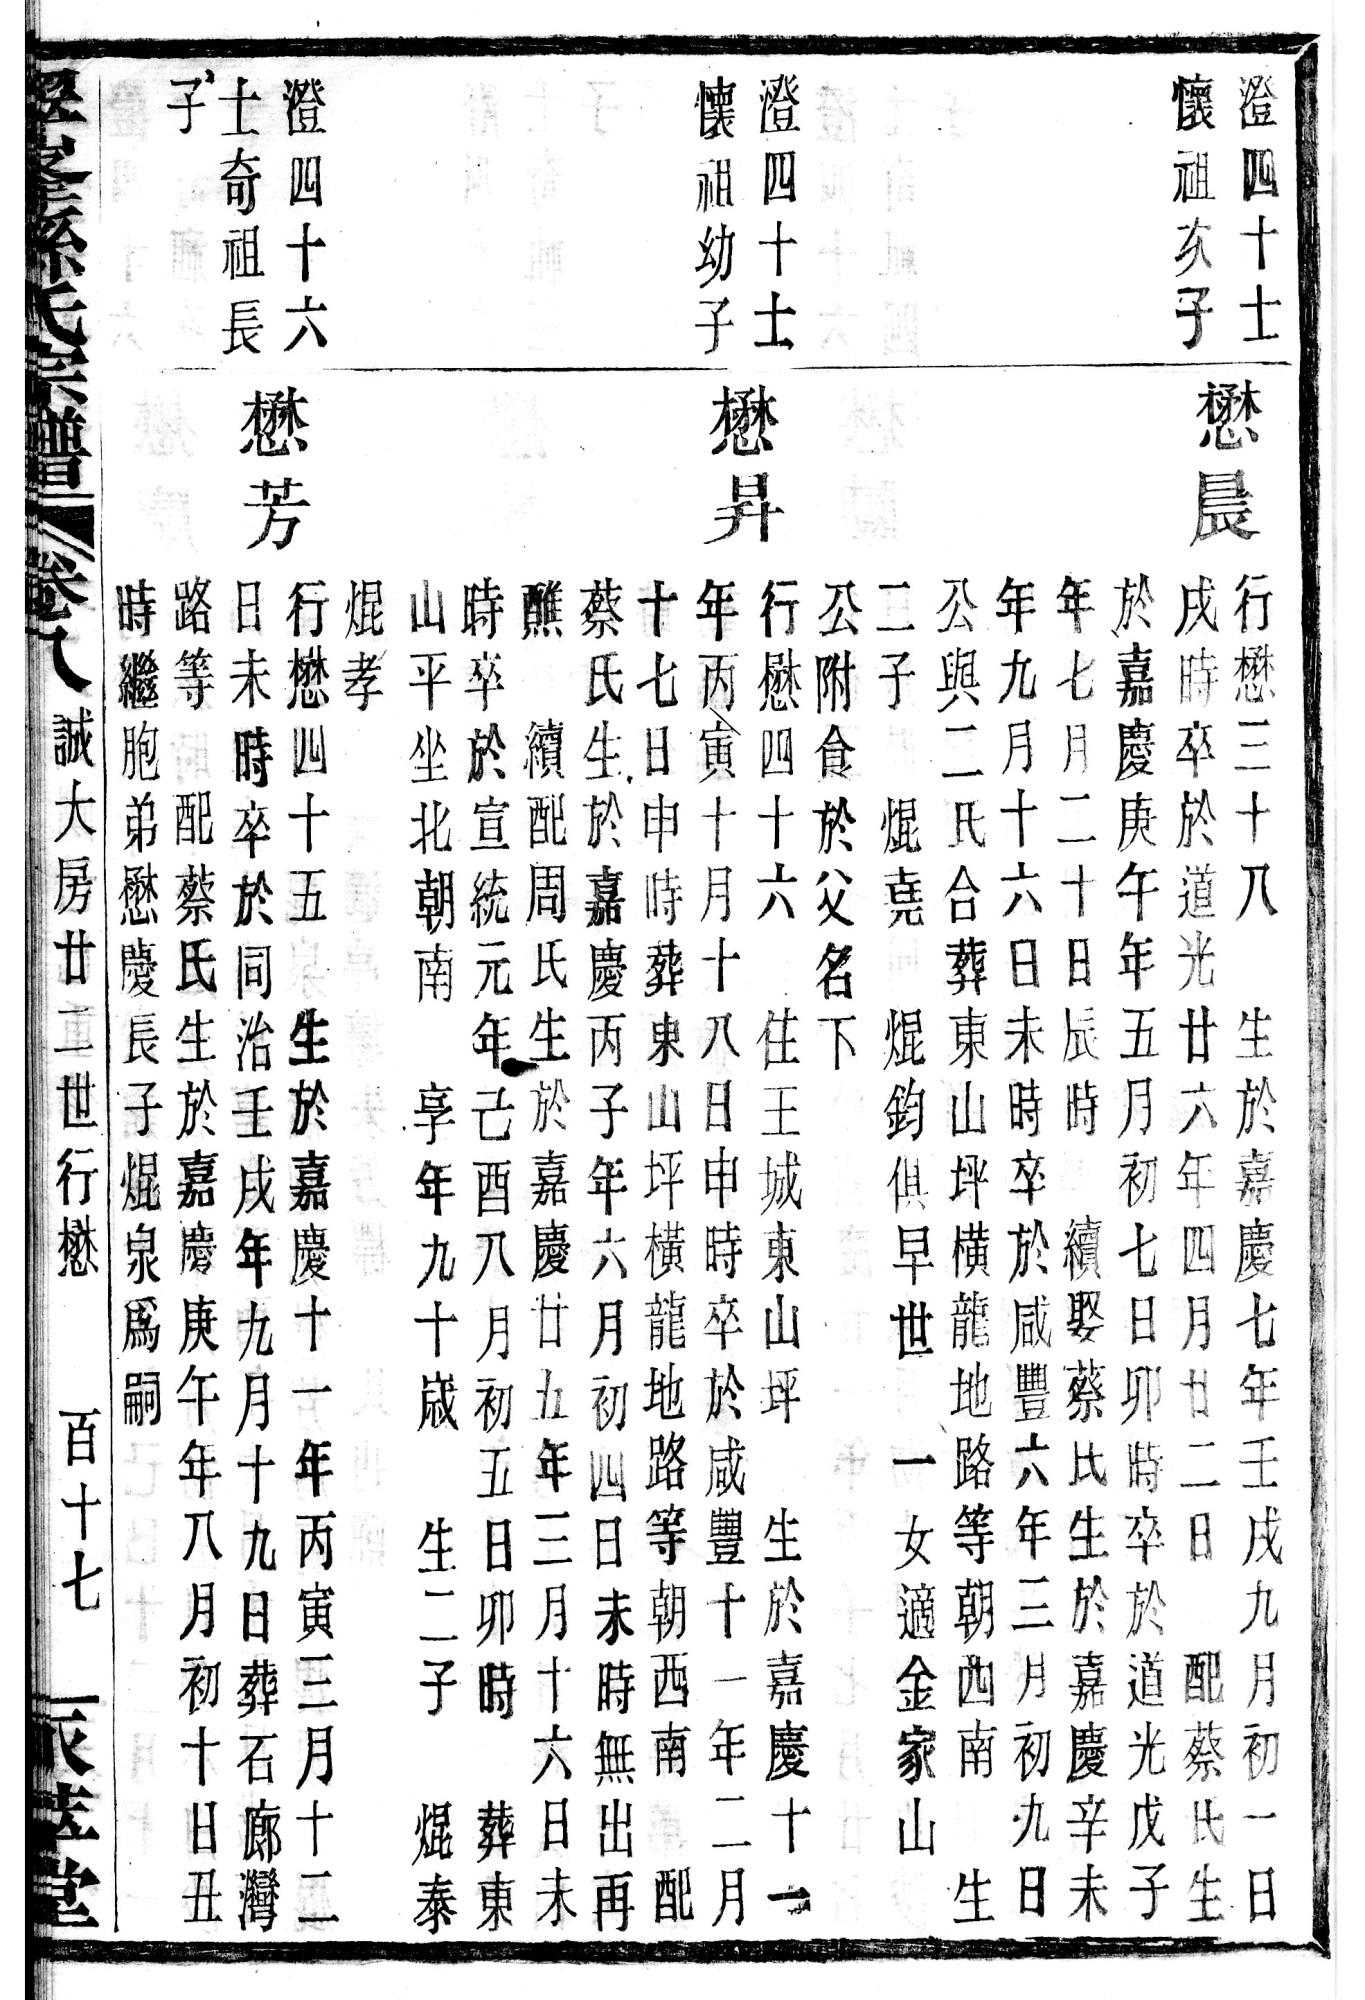 澄四十士
懷祖次子
懋晨
行懋三十八　生於嘉慶七年壬戌九月初一日
戌時卒於道光廿六年四月廿二日　配蔡氏生
於嘉慶庚午年五月初七日卯時卒於道光戊子
年七月二十日辰時　續娶蔡氏生於嘉慶辛未
年九月十六日未時卒於咸豐六年三月初九日
公與二氏合葬東山坪橫龍地路等朝西南　生
二子　焜堯　焜鈞俱早世　一女適金家山
公附食於父名下
澄四十士
懷祖幼子
懋昇
行懋四十六　住王城東山坪　生於嘉慶十一
年丙寅十月十八日申時卒於咸豐十一年二月
十七日申時葬東山坪橫龍地路等朝西南　配
蔡氏生於嘉慶丙子年六月初四日未時無出再
醮　續配周氏生於嘉慶廿五年三月十六日未
時卒於宣統元年己酉八月初五日卯時　葬東
山平坐北朝南　享年九十歲　生二子　焜泰
焜孝
澄四十六
士奇祖長
子
懋芳
行懋四十五　生於嘉慶十一年丙寅三月十二
日未時卒於同治壬戌年九月十九日葬石廊灣
路等　配蔡氏生於嘉慶庚午年八月初十日丑
時繼胞弟懋慶長子焜泉爲嗣
孫氏宗譜　卷八　誠大房廿二世行懋　百十七　堂